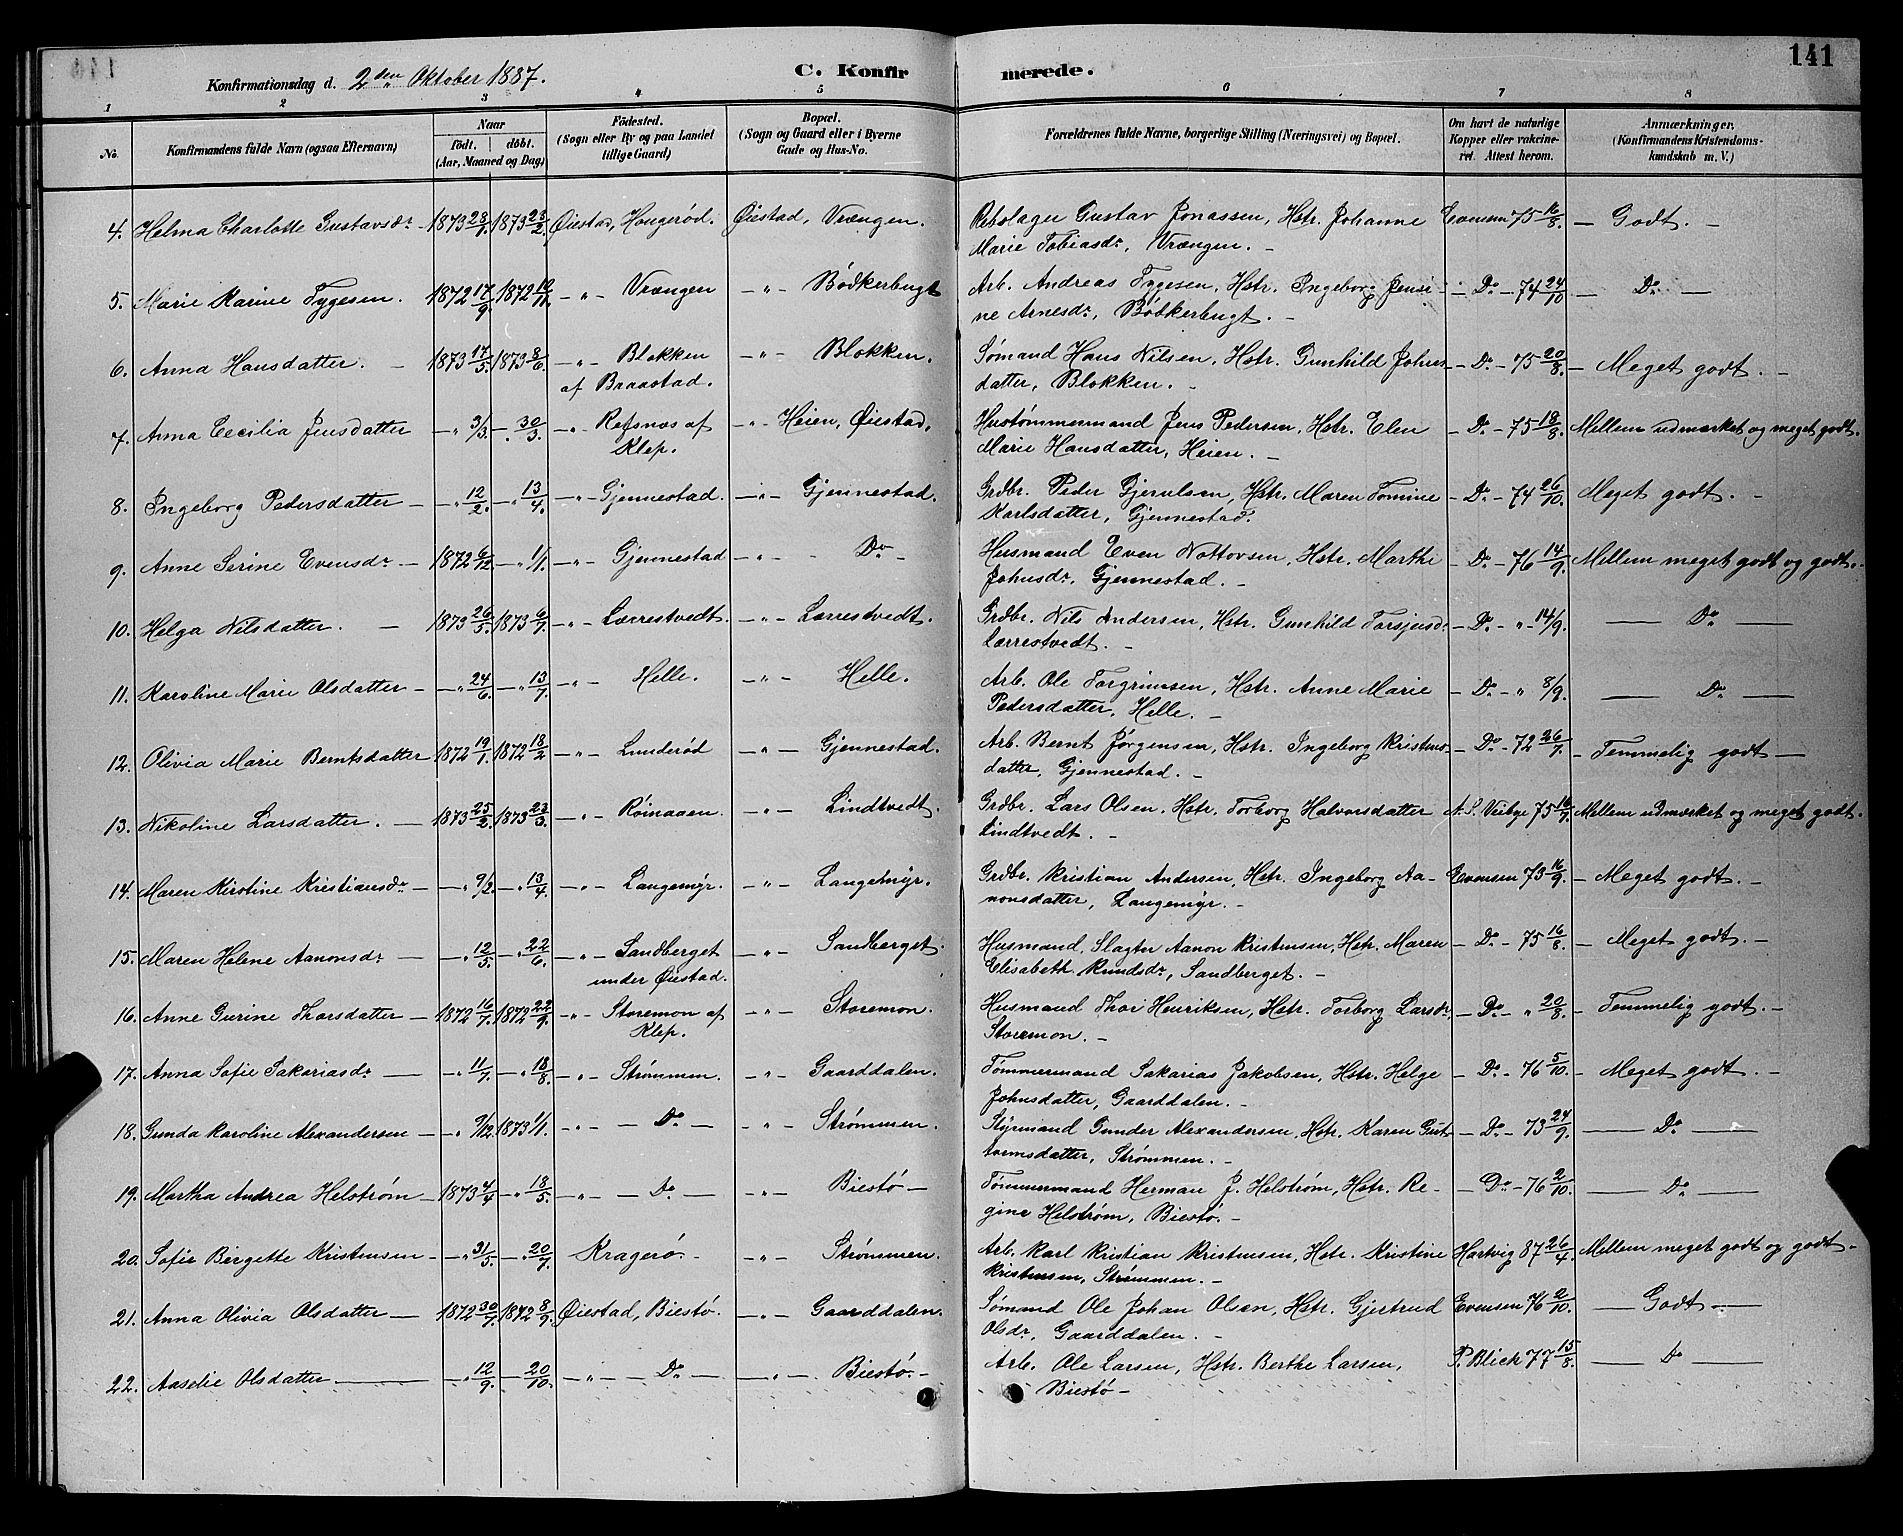 141
Konfirmationsdag d. 2den Oktober 1887.
C. Konfirmerede.
1 2 3 4 5 6 7 8
No. Konfirmandens fulde Navn (ogsaa Efternavn) Naar født. døbt. (Aar, Maaned og Dag) Fødested. (Sogn eller By og paa Landet tillige Gaard) Bopæl. (Sogn og Gaard eller i Byerne Gade og Hus-No. Forældrenes fulde Navne, borgerlige Stilling (Næringsvei) og Bopæl. Om havt de naturlige Kopper eller vakcineret. Attest herom. Anmærkninger. (Konfirmandens Kristendomskundskab m. V.)
4. Helma Charlotte Gustavsdr. 1873 28/1. 1873 23/2. Øiestad, Hougerød. Øiestad, Vrængen. Rebslager Gustav Jonassen, Hstr. Johanne Evensen 75 16/8. — Godt. —
Marie Tobiasdr, Vrængen. —
5. Marie Karine Tygesen. 1872 17/9. 1872 10/11. —"— Vrængen —"— Bødkerbugt Arb. Andreas Tygesen, Hstr. Ingeborg Jensi- — Do — 74 24/10 — Do —
ne Arnesdr, Bødkerbugt. —
6. Anna Hansdatter. — 1873 17/5. 1873 8/6. —"— Blokken —"— Blokken. Sømand Hans Nilsen, Hstr. Gunhild Johns- — Do — 75 20/8. — Meget godt. —
af Braastad. datter, Blokken. —
7. Anna Cecilia Jensdatter —"— 3/3. —"— 30/3. —"— Refsnæs af —"— Heien, Øiestad. Hustømmermand Jens Pedersen, Hstr. Elen — Do — 75 18/8. Mellem udmærket og meget godt.
Klep. Marie Hansdatter, Heien. —
8. Ingeborg Pedersdatter —"— 12/2. —"— 13/4. —"— Gjennestad. —"— Gjennestad. Grdbr. Peder Gjerulsen, Hstr. Maren Tomine — Do — 74 26/10. Meget godt. —
Karlsdatter, Gjennestad.
9. Anne Serine Evensdr. — 1872 6/12 —"— 1/1. —"— Gjennestad —"— Do — Husmand Even Nottovsen, Hstr. Marthe — Do — 76 14/9. Mellem meget godt og godt.
Johnsdr, Gjennestad. —
10. Helga Nilsdatter. — 1873 26/5. 1873 6/7. —"— Lærrestvedt. —"— Lærrestvedt. Grdbr. Nils Andersen, Hstr. Gunhild Torsjusdr — Do — " 14/9. — Do —
Lærrestvedt. —
11. Karoline Marie Olsdatter —"— 24/6. —"— 13/7. —"— Helle. —"— Helle. Arb. Ole Torgrimsen, Hstr. Anne Marie — Do — " 8/9. — Do —
Pedersdatter, Helle. —
12. Olivia Marie Berntsdatter 1872 19/1. 1872 18/2 —"— Lunderød —"— Gjennestad. Arb. Bernt Jørgensen, Hstr. Ingeborg Kristens- — Do — 72 26/7. — Temmelig godt —
datter, Gjennestad. —
13. Nikoline Larsdatter. — 1873 25/2. 1873 23/3. —"— Rømaaen. —"— Lindtvedt. Grdbr. Lars Olsen, Hstr. Torborg Halvorsdatter N. S. Veibye 75 16/7. Mellem udmærket og meget godt.
Lindtvedt. —
14. Maren Kirstine Kristiansdr. —"— 9/2. —"— 13/4. —"— Langemyr. —"— Langemyr. Grdbr. Kristian Andersen, Hstr. Ingeborg Aa- Evensen 73 16/9. — Meget godt. —
nonsdatter, Langemyr. —
15. Maren Helene Aanonsdr. —"— 12/5. —"— 22/6. —"— Sandberget —"— Sandberget. Husmand, Slagter Aanon Kristensen, Hstr. Maren — Do — 75 16/8. — Meget godt. —
under Øiestad. Elisabeth Knudsdr, Sandberget. —
16. Anne Gurine Thorsdatter — 1872 16/7. 1872 22/9. —"— Storemon af —"— Storemon. Husmand Thor Henriksen, Hstr. Torborg Larsdr. — Do — " 20/8. — Temmelig godt. —
Klep. Storemon. —
17. Anna Sofie Sakariasdr. —"— 11/7. —"— 18/8. —"— Strømmen. —"— Gaarddalen. Tømmermand Sakarias Jakobsen, Hstr. Helge — Do — 76 5/10. — Meget godt. —
Johnsdatter, Gaarddalen. —
18. Gunda Karoline Alexandersen —"— 9/12. 1873 1/1. —"— Do — —"— Strømmen. Styrmand Gunder Alexandersen, Hstr. Karen Gut- — Do — 73 24/9. — Do —
tormsdatter, Strømmen. —
19. Martha Andrea Helstrøm — 1873 4/4 —"— 18/5. —"— Do — —"— Biestø — Tømmermand Herman J. Helstrøm, Hstr. Re- — Do — 76 2/10. — Do —
gine Helstrøm, Biestø. —
20. Sofie Birgette Kristensen —"— 31/5. —"— 20/7. Kragerø. —"— Strømmen. Arb. Karl Kristian Kristensen, Hstr. Kristine Hartvig 87 26/4. Mellem meget godt og godt. —
Kristensen, Strømmen. —
21. Anna Olivia Olsdatter — 1872 30/7. 1872 8/9. Øiestad, Biestø. —"— Gaarddalen. Sømand Ole Johan Olsen, Hstr. Gjertrud Evensen 76 2/10. — Godt —
Olsdr, Gaarddalen. —
22. Aaselie Olsdatter —"— 12/9. —"— 20/10. —"— Do — —"— Biestø. — Arb. Ole Larsen, Hstr. Berthe Larsen, P. Blich 77 15/8. — Do —
Biestø —